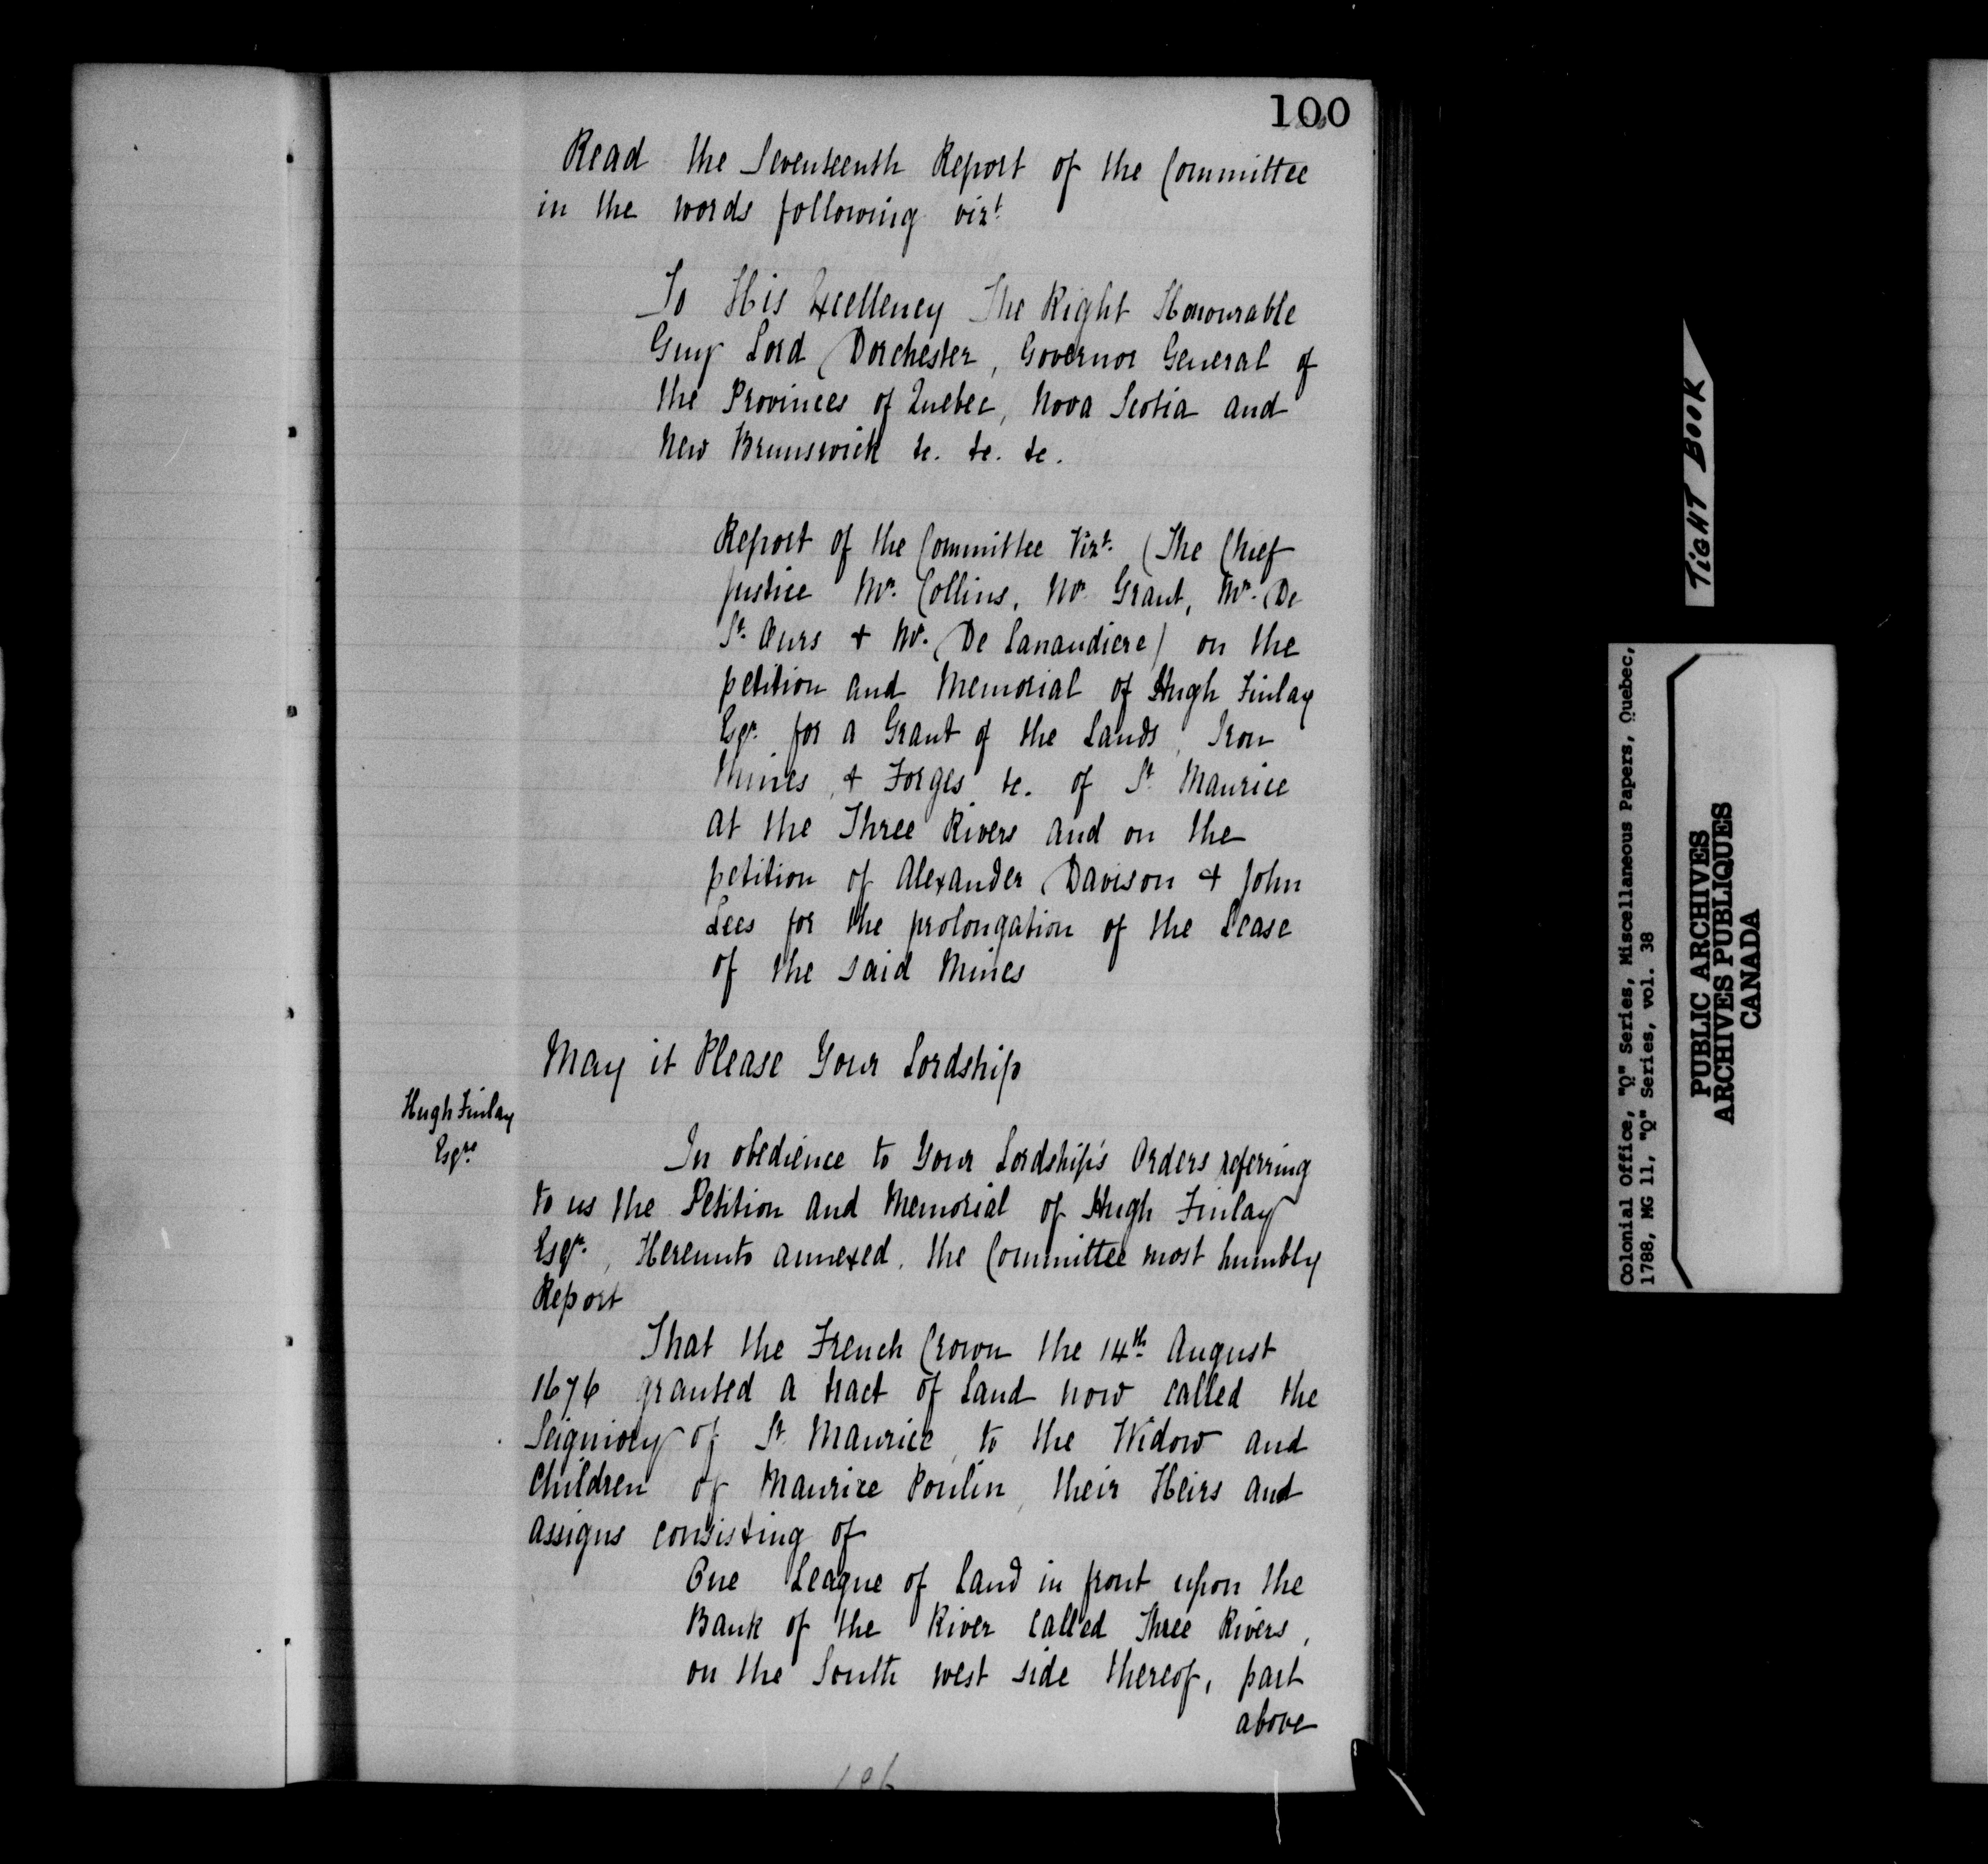 100
Read the Seventeenth Report of the Committee
in the words following vizt
To His Excellency The Right Honourable
Guy Lord Dorchester, Governor General of
the Provinces of Quebec, Nova Scotia and
New Brunswick &c. &c. &c.
Report of the Committee Vizt. (The Chief
Justice Mr. Collins, Mr. Grant, Mr. De
St. Ours & Mr. De Lanaudiere) on the
petition and Memorial of Hugh Finlay
Esqr. for a Grant of the Lands, Iron
Mines, & Forges &c. of St. Maurice
at the Three Rivers and on the
petition of Alexander Davison & John
Lees for the prolongation of the Lease
of the said Mines
May it Please Your Lordship
Hugh Finlay
Esqre
In obedience to Your Lordship's Orders referring
to us the Petition and Memorial of Hugh Finlay
Esqr., Hereunto annexed, the Committee most humbly
Report
That the French Crown the 14th August
1676 granted a tract of Land now called the
Seigniory of St. Maurice, to the Widow and
Children of Maurice Poulin, their Heirs and
assigns consisting of
One League of Land in front upon the
Bank of the River called Three Rivers,
on the South west side thereof, part
above
TIGHT BOOK
Colonial Office, "Q" Series, Miscellaneous Papers, Quebec,
1788, MG 11, "Q" Series, vol. 38
PUBLIC ARCHIVES
ARCHIVES PUBLIQUES
CANADA